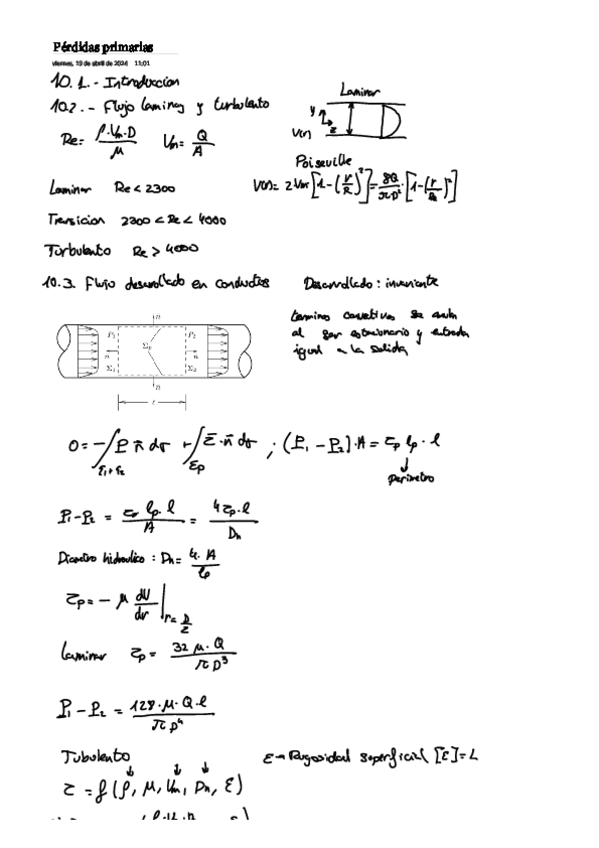 Pérdidas primarias
viernes, 19 de abril de 2024 11:01
10.1.- Introduccion
10.2.- Flujo laminar y turbulento
Re = ρ·Vm·D / μ   Vm = Q / A
Laminar
y
z
V(r)
Poiseville
Laminar Re < 2300
V(r) = 2Vm [1-(r/R)²] = 8Q/πD² · [1-(r/R)²]
Transicion 2300 < Re < 4000
Turbulento Re > 4000
10.3. Flujo desarrollado en conductos
Desarrollado: invariante
termino convectivo se anula
al ser estacionario y entrada
igual a la salida
n
P₁ Σp P₂
n n
Σ₁ Σ₂
n
ℓ
0 = -∫Σ₁+Σ₂ P n̄ dσ + ∫Σp τ̄·n̄ dσ ; (P₁ - P₂)·A = τp lp · l
↓
perimetro
P₁-P₂ = τp lp·l / A = 4τp·l / Dh
Diametro hidraulico : Dh = 4·A / lp
τp = - μ dV/dr |r=D/2
Laminar τp = 32 μ·Q / πD³
P₁ - P₂ = 128·μ·Q·l / πD⁴
Turbulento
ε → Rugosidad superficial [ε] = L
τ = f(ρ, μ, Vm, Dh, ε)